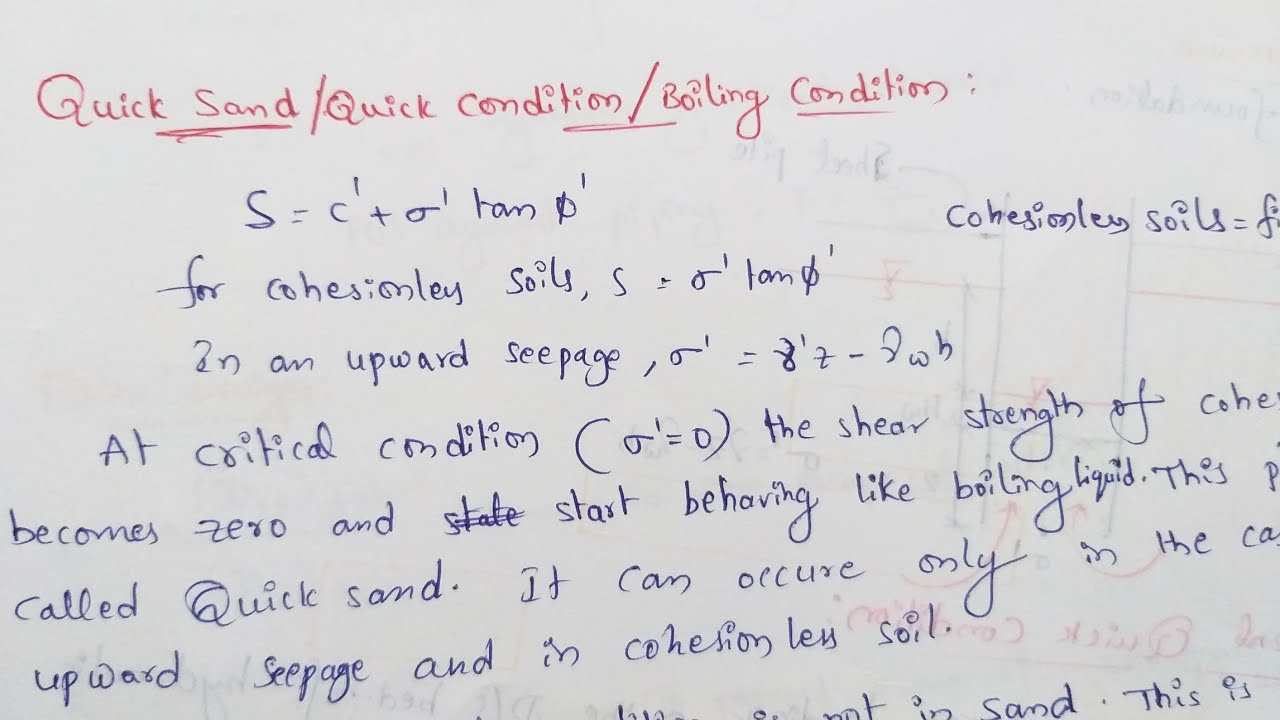 Quick Sand/Quick condition/Boiling Condition:
S = c' + σ' tan φ'
cohesionless soils = fi
for cohesionless soils, s = σ' tan φ'
In an upward seepage, σ' = γ'z - γwh
At critical condition (σ'=0) the shear strength of cohe
becomes zero and state start behaving like boiling liquid. This p
called Quick sand. It can occure only in the cas
upward seepage and in cohesionless soil.
not in sand. This is